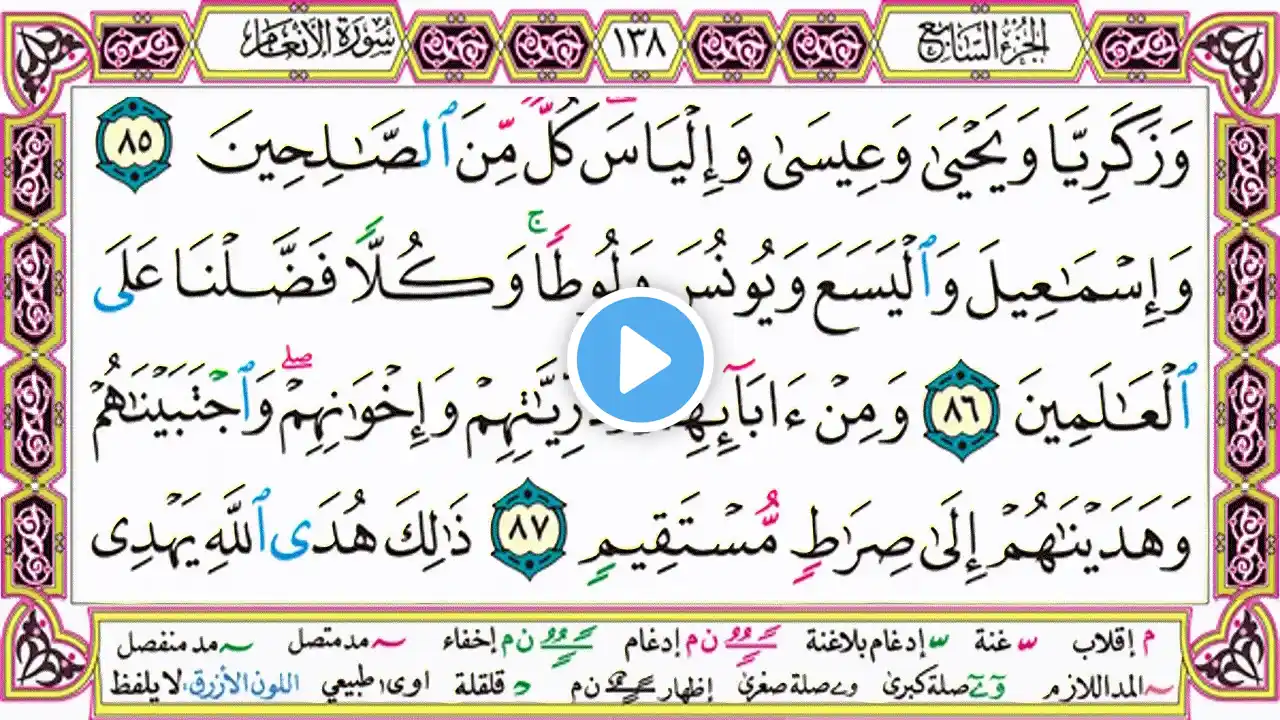 سورة الأنعام ١٣٨ الجزء السابع
وَزَكَرِيَّا وَيَحْيَىٰ وَعِيسَىٰ وَإِلْيَاسَ كُلٌّ مِّنَ ٱلصَّـٰلِحِينَ ٨٥
وَإِسْمَـٰعِيلَ وَٱلْيَسَعَ وَيُونُسَ وَلُوطًا ۚ وَكُلًّا فَضَّلْنَا عَلَى
ٱلْعَـٰلَمِينَ ٨٦ وَمِنْ ءَابَآئِهِمْ وَذُرِّيَّـٰتِهِمْ وَإِخْوَٰنِهِمْ ۖ وَٱجْتَبَيْنَـٰهُمْ
وَهَدَيْنَـٰهُمْ إِلَىٰ صِرَٰطٍ مُّسْتَقِيمٍ ٨٧ ذَٰلِكَ هُدَى ٱللَّهِ يَهْدِى
م إقلاب غنة إدغام بلاغنة ن م إدغام ن م إخفاء مد متصل مد منفصل
المد اللازم صلة كبرى صلة صغرى إظهار ن م قلقلة اوى طبيعي اللون الأزرق: لا يلفظ